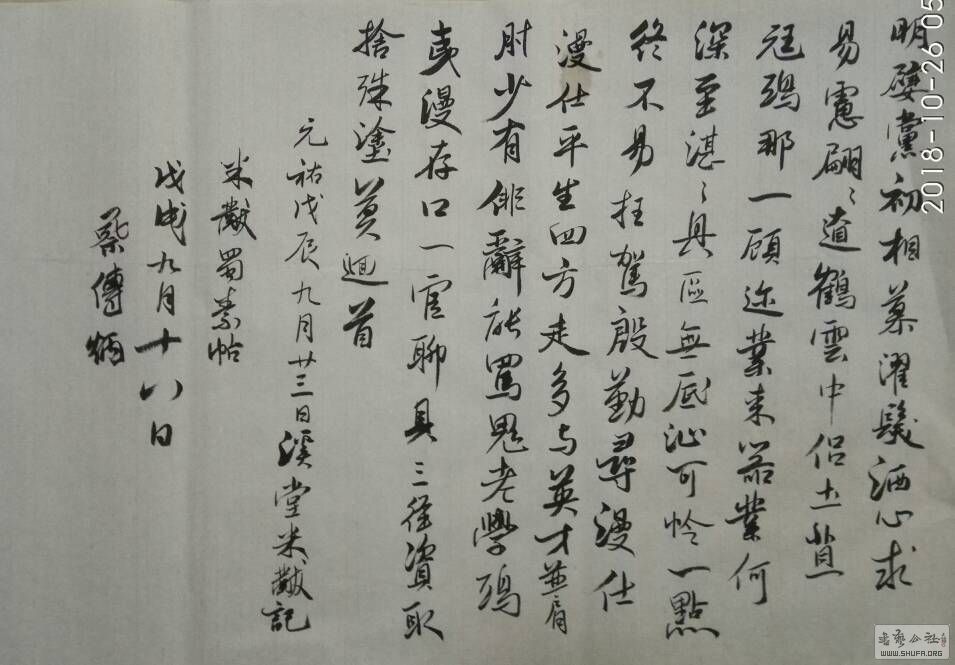 明嬖黨初相慕濯髮洒心求
易慮翩〻遼鶴雲中侣土苴
尫鴟那一顧迩業来器業何
深至湛〻具區無底沚可怜一點
終不易枉駕殷勤尋漫仕
漫仕平生四方走多与英才並肩
肘少有俳辭能罵鬼老學鴟
夷漫存口一官聊具三徑資取
捨殊塗莫迴首
元祐戊辰九月廿三日溪堂米黻記
米黻蜀素帖
戊戌九月十八日
蔡傳炳
2018-10-26 05
WWW.SHUFA.ORG